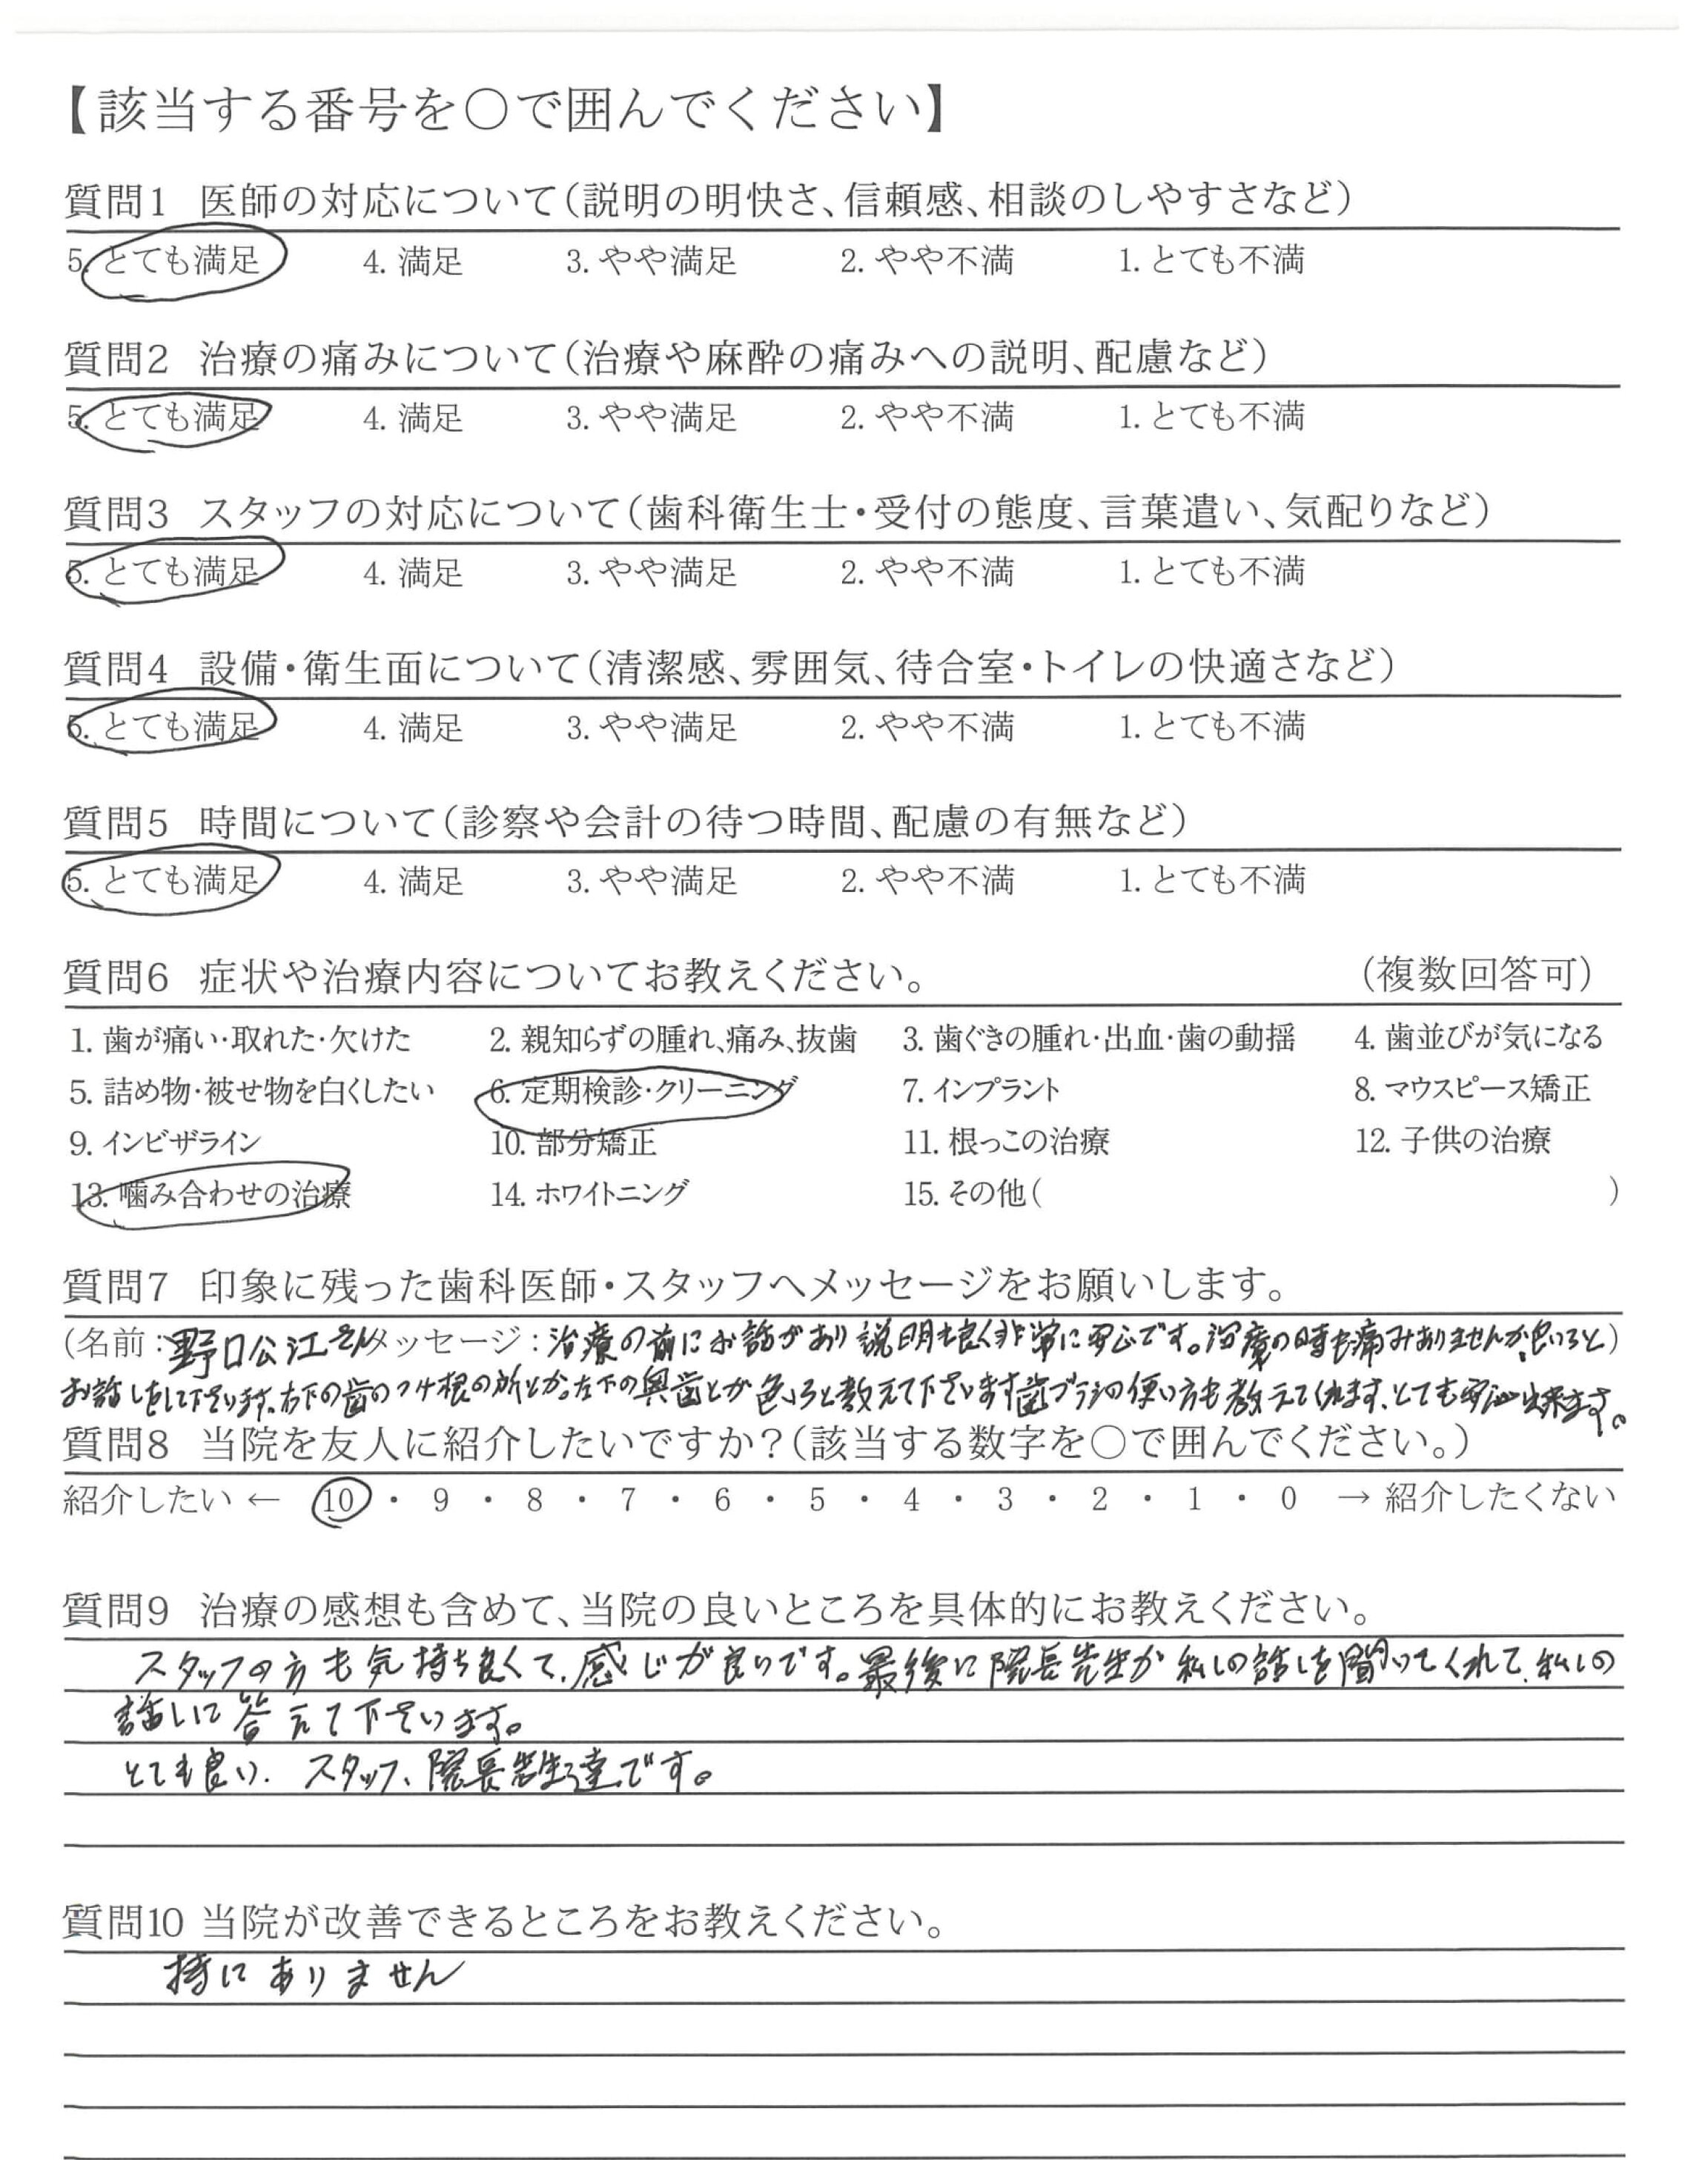 【該当する番号を〇で囲んでください】
質問1 医師の対応について(説明の明快さ、信頼感、相談のしやすさなど)
5. とても満足 4. 満足 3. やや満足 2. やや不満 1. とても不満
質問2 治療の痛みについて(治療や麻酔の痛みへの説明、配慮など)
5. とても満足 4. 満足 3. やや満足 2. やや不満 1. とても不満
質問3 スタッフの対応について(歯科衛生士・受付の態度、言葉遣い、気配りなど)
5. とても満足 4. 満足 3. やや満足 2. やや不満 1. とても不満
質問4 設備・衛生面について(清潔感、雰囲気、待合室・トイレの快適さなど)
5. とても満足 4. 満足 3. やや満足 2. やや不満 1. とても不満
質問5 時間について(診察や会計の待つ時間、配慮の有無など)
5. とても満足 4. 満足 3. やや満足 2. やや不満 1. とても不満
質問6 症状や治療内容についてお教えください。 (複数回答可)
1. 歯が痛い・取れた・欠けた 2. 親知らずの腫れ、痛み、抜歯 3. 歯ぐきの腫れ・出血・歯の動揺 4. 歯並びが気になる
5. 詰め物・被せ物を白くしたい 6. 定期検診・クリーニング 7. インプラント 8. マウスピース矯正
9. インビザライン 10. 部分矯正 11. 根っこの治療 12. 子供の治療
13. 噛み合わせの治療 14. ホワイトニング 15. その他( )
質問7 印象に残った歯科医師・スタッフへメッセージをお願いします。
(名前:野口公江さんメッセージ:治療の前にお話があり説明も良く非常に安心です。治療の時も痛みありませんか、色いろと)
お話しをして下さいます、右下の歯のつけ根の所とか。左下の奥歯とか色いろと教えて下さいます歯ブラシの使い方も教えてくれます、とても安心出来ます。
質問8 当院を友人に紹介したいですか?(該当する数字を〇で囲んでください。)
紹介したい ← 10 ・ 9 ・ 8 ・ 7 ・ 6 ・ 5 ・ 4 ・ 3 ・ 2 ・ 1 ・ 0 → 紹介したくない
質問9 治療の感想も含めて、当院の良いところを具体的にお教えください。
スタッフの方も気持ち良くて、感じが良いです。最後に院長先生が私しの話しを聞いてくれて、私しの
話しに答えて下さいます。
とても良い、スタッフ、院長先生達です。
質問10 当院が改善できるところをお教えください。
特にありません